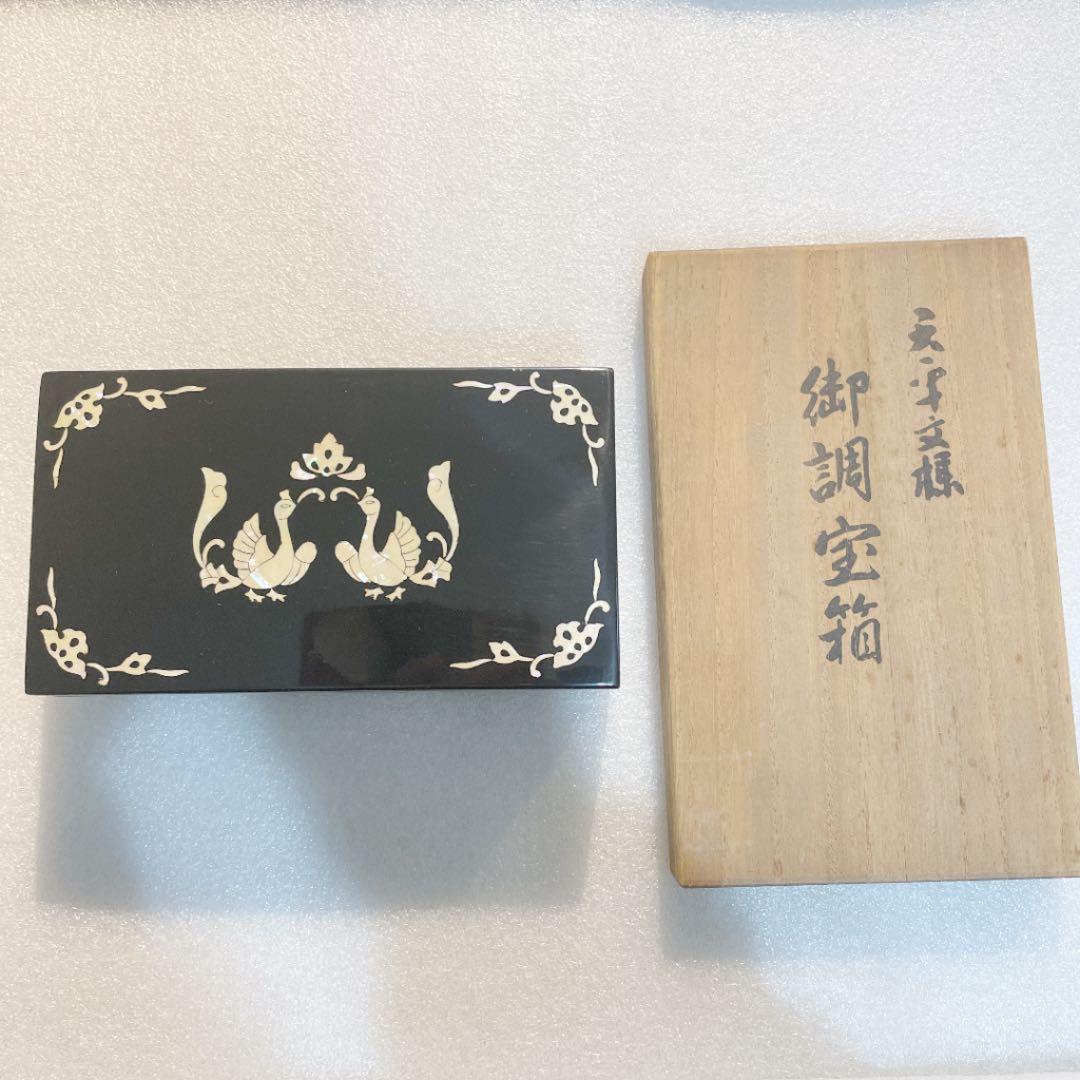 天平文様
御調宝箱